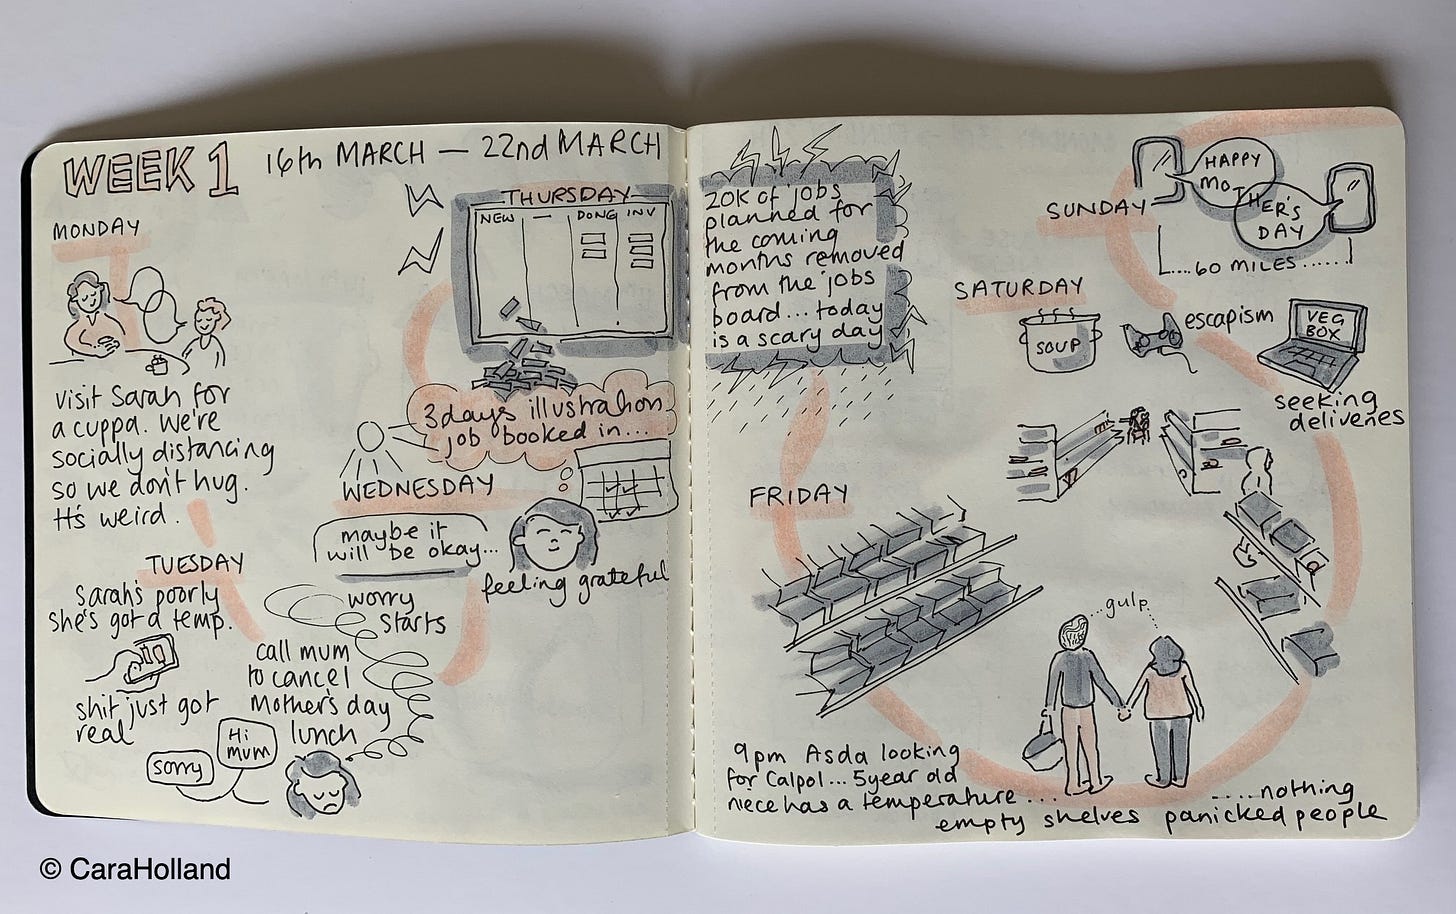 WEEK 1 16th MARCH — 22nd MARCH
MONDAY
visit Sarah for
a cuppa. We're
socially distancing
so we don't hug.
It's weird.
TUESDAY
Sarah's poorly
she's got a temp.
shit just got
real
call mum
to cancel
Mother's day
lunch
Hi
mum
sorry
worry
starts
maybe it
will be okay...
WEDNESDAY
feeling grateful
3 days illustration
job booked in...
THURSDAY
NEW — DONE INV
20K of jobs
planned for
the coming
months removed
from the jobs
board... today
is a scary day
FRIDAY
9pm Asda looking
for Calpol... 5 year old
niece has a temperature....
empty shelves
....nothing
panicked people
...gulp...
SATURDAY
SOUP
escapism
VEG
BOX
seeking
deliveries
SUNDAY
HAPPY
MOTHER'S
DAY
....60 MILES......
© CaraHolland